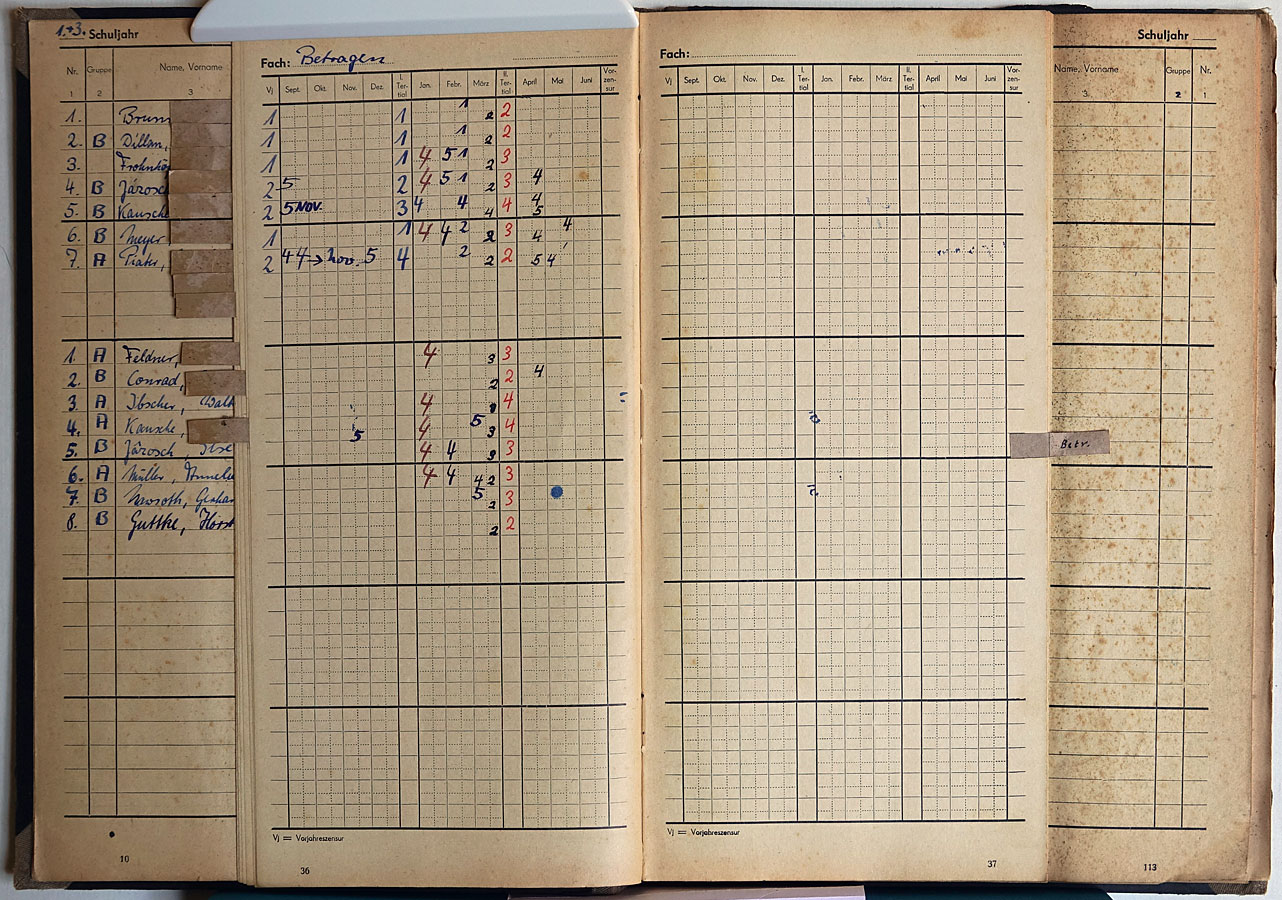 1.+3. Schuljahr
Nr. Gruppe Name, Vorname
1 2 3
1. Brum
2. B Dillan,
3. Frohnhö
4. B Járosch
5. B Kausche
6. B Meyer
7. A Piater,
1. A Feldner,
2. B Conrad,
3. A Ibscher, Walt
4. A Kausche,
5. B Járosch, Ilse
6. A Müller, Annelie
7. B Gerhar
8. B Guttke, Horst
10
Fach: Betragen
Vj Sept. Okt. Nov. Dez. I. Ter-tial Jan. Febr. März II. Ter-tial April Mai Juni Vor-zen-sur
1 1 1 2 2
1 1 1 2 2
1 1 4 5 1 2 3
2 5 2 4 5 1 2 3 4
2 5 NOV. 3 4 4 4 4 4 5
1 1 4 4 2 2 3 4 4
2 4 4 → Nov. 5 4 2 2 2 5 4
4 3 3
2 2 4
4 4
5 4 5 3 4
4 4 3 3
4 4 4 2 3
5 2 3
2 2
Vj = Vorjahreszensur
36
Fach:
Vj Sept. Okt. Nov. Dez. I. Ter-tial Jan. Febr. März II. Ter-tial April Mai Juni Vor-zen-sur
Vj = Vorjahreszensur
37
Schuljahr
Name, Vorname Gruppe Nr.
3 2 1
Betr.
113